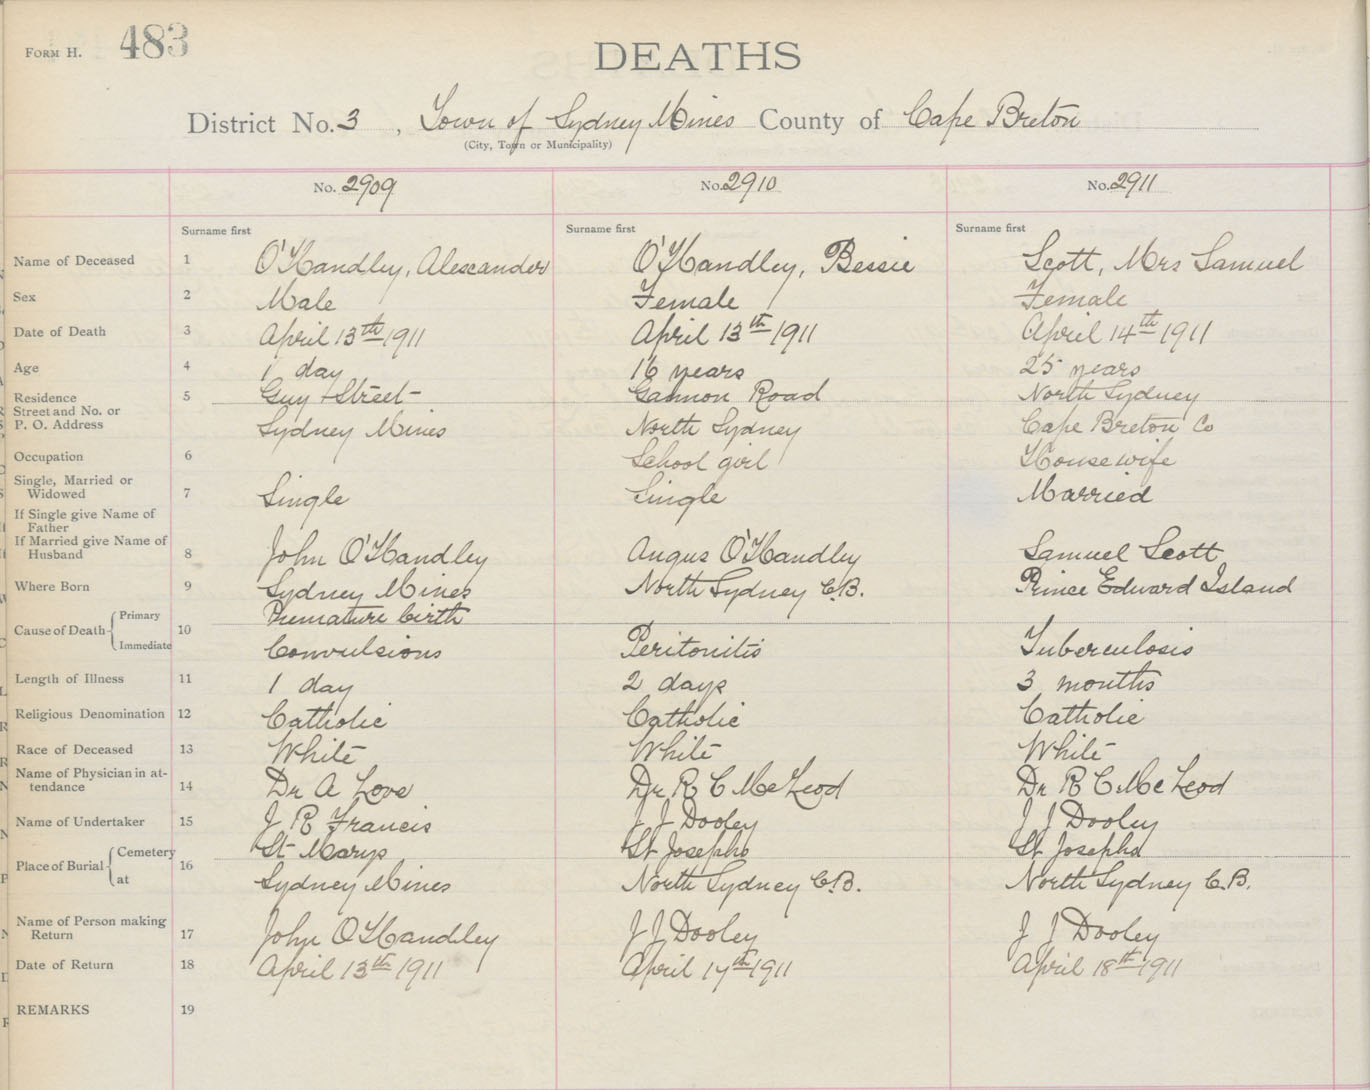 FORM H. 483
DEATHS
District No. 3, Town of Sydney Mines County of Cape Breton
(City, Town or Municipality)
No. 2909 No. 2910 No. 2911
Surname first Surname first Surname first
Name of Deceased 1 O'Handley, Alexander O'Handley, Bessie Scott, Mrs Samuel
Sex 2 Male Female Female
Date of Death 3 April 13th 1911 April 13th 1911 April 14th 1911
Age 4 1 day 16 years 25 years
Residence 5 Guy Street Gannon Road North Sydney
Street and No. or
P. O. Address Sydney Mines North Sydney Cape Breton Co
Occupation 6 School girl Housewife
Single, Married or
Widowed 7 Single Single Married
If Single give Name of
Father
If Married give Name of
Husband 8 John O'Handley Angus O'Handley Samuel Scott
Where Born 9 Sydney Mines North Sydney C.B. Prince Edward Island
Primary Premature birth
Cause of Death 10
Immediate Convulsions Peritonitis Tuberculosis
Length of Illness 11 1 day 2 days 3 months
Religious Denomination 12 Catholic Catholic Catholic
Race of Deceased 13 White White White
Name of Physician in at-
tendance 14 Dr A Love Dr R C McLeod Dr R C McLeod
Name of Undertaker 15 J R Francis J J Dooley J J Dooley
Cemetery St Marys St Josephs St Josephs
Place of Burial 16
at Sydney Mines North Sydney C.B. North Sydney C.B.
Name of Person making
Return 17 John O'Handley J J Dooley J J Dooley
Date of Return 18 April 13th 1911 April 17th 1911 April 18th 1911
REMARKS 19